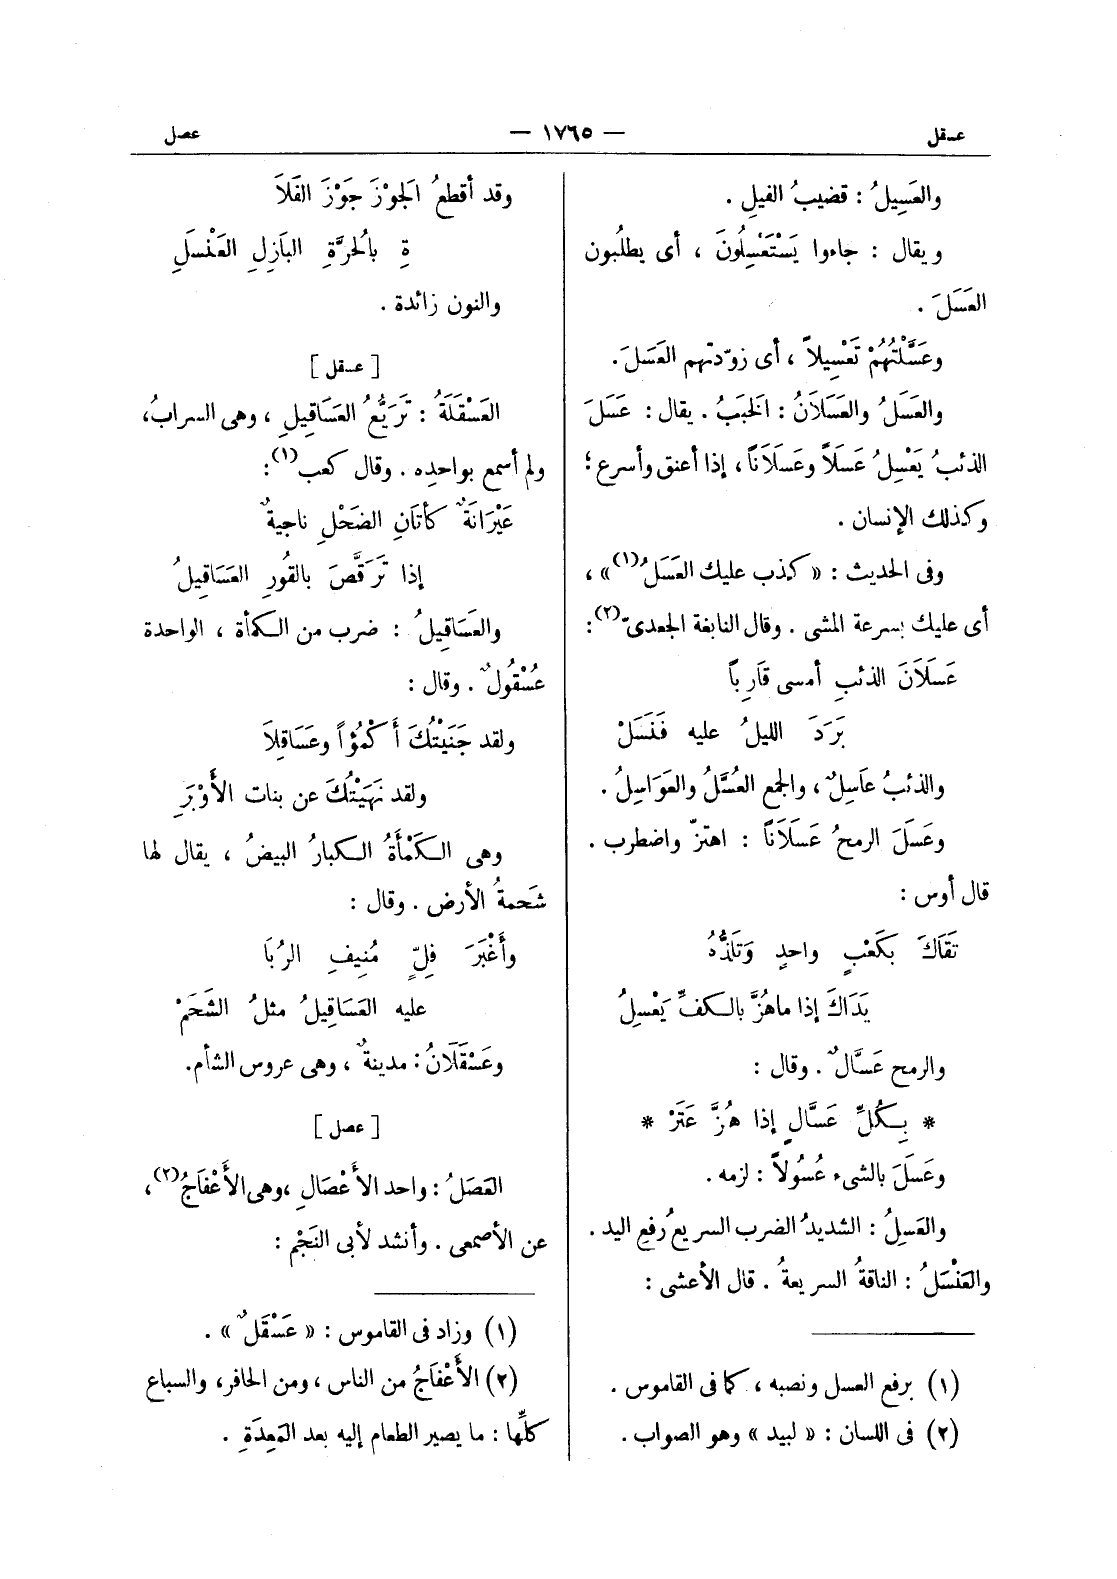 عسقل
— ١٧٦٥ —
عصل
والعَسِيلُ : قضيبُ الفيلِ .
ويقال : جاءوا يَسْتَعْسِلُونَ ، أى يطلُبون
العَسَلَ .
وعَسَّلْتُهُمْ تَعْسِيلاً ، أى زوّدتهم العَسَلَ .
والعَسَلُ والعَسَلَانُ : الخَبَبُ . يقال : عَسَلَ
الذئبُ يَعْسِلُ عَسَلاً وعَسَلَاناً ، إذا أعنق وأسرع ؛
وكذلك الإنسان .
وفى الحديث : « كذب عليك العَسَلُ (١) » ،
أى عليك بسرعة المشى . وقال النابغة الجعدىّ (٢) :
عَسَلَانَ الذئبِ أمسى قَارِباً
بَرَدَ الليلُ عليه فَنَسَلْ
والذئبُ عاَسِلٌ ، والجمع العُسَّلُ والعَوَاسِلُ .
وعَسَلَ الرمحُ عَسَلَاناً : اهتزّ واضطرب .
قال أوس :
تَقَاكَ بكَعْبٍ واحدٍ وَتَلَذُّهُ
يَدَاكَ إذا ماهُزَّ بالكفِّ يَعْسِلُ
والرمح عَسَّالٌ . وقال :
* بِكُلِّ عَسَّالٍ إذا هُزَّ عَتَرْ *
وعَسَلَ بالشىء عُسُولاً : لزمه .
والعَسِلُ : الشديدُ الضرب السريعُ رفعِ اليد .
والعَنْسَلُ : الناقةُ السريعةُ . قال الأعشى :
(١) برفع العسل ونصبه ، كما فى القاموس .
(٢) فى اللسان : « لبيد » وهو الصواب .
وقد أقطعُ الجَوْزَ جَوْزَ الفَلَا
ةِ بالُحرَّةِ البَازِلِ العَنْسَلِ
والنون زائدة .
[ عسقل ]
العَسْقَلَةُ : تَرَيُّعُ العَسَاقِيلِ ، وهى السرابُ ،
ولم أسمع بواحدِه . وقال كعب (١) :
عَيْرَانَةٌ كأتَانِ الضَحْلِ ناجيةٌ
إذا تَرَقَّصَ بالقُورِ العَسَاقِيلُ
والعَسَاقِيلُ : ضرب من الكمأة ، الواحدة
عُسْقُولٌ . وقال :
ولقد جَنَيْتُكَ أَكْمُؤاً وعَسَاقِلاَ
ولقد نَهَيْتُكَ عن بنات الأَوْبَرِ
وهى الكَمْأَةُ الكبارُ البيضُ ، يقال لها
شَحمةُ الأرض . وقال :
وأَغْبَرَ فِلٍّ مُنِيفِ الرُبَا
عليه العَسَاقِيلُ مثلُ الشَحَمْ
وعَسْقَلَانُ : مدينةٌ ، وهى عروس الشأم .
[ عصل ]
العَصَلُ : واحد الأَعْصَالِ ، وهى الأَعْفَاجُ (٢) ،
عن الأصمعى . وأنشد لأبى النَجْمِ :
(١) وزاد فى القاموس : « عَسْقَلٌ » .
(٢) الأَعْفَاجُ من الناس ، ومن الحافر ، والسباع
كلِّها : ما يصير الطعام إليه بعد المَعِدَةِ .